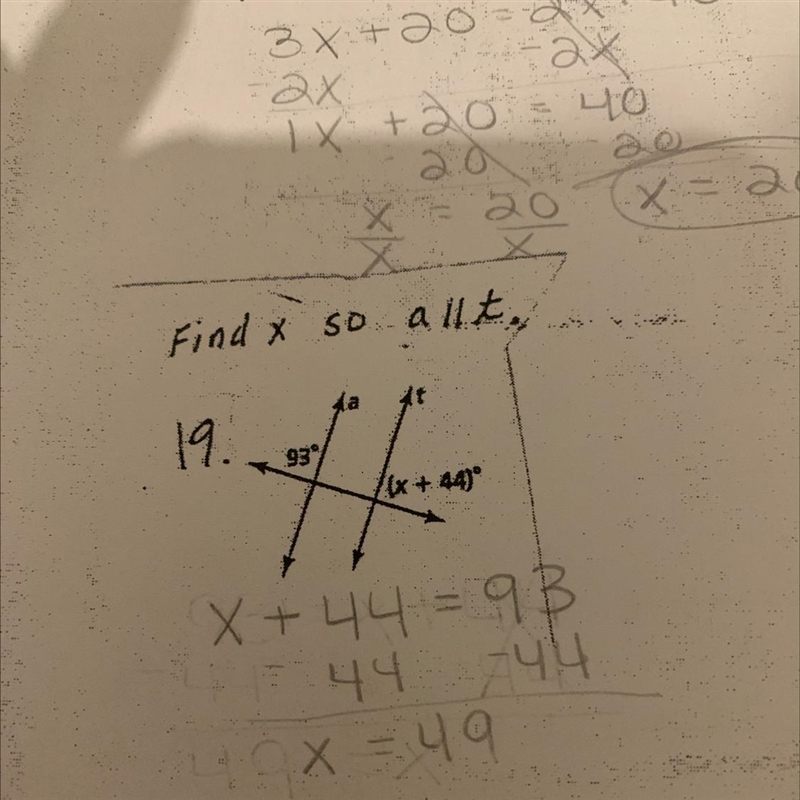 3x + 20 = 2x + 40
-2x -2x
1x + 20 = 40
20 20
x/x = 20/x
x = 20
Find x so allt.
19.
a
t
93°
(x + 44)°
x + 44 = 93
- 44 -44
x = 49